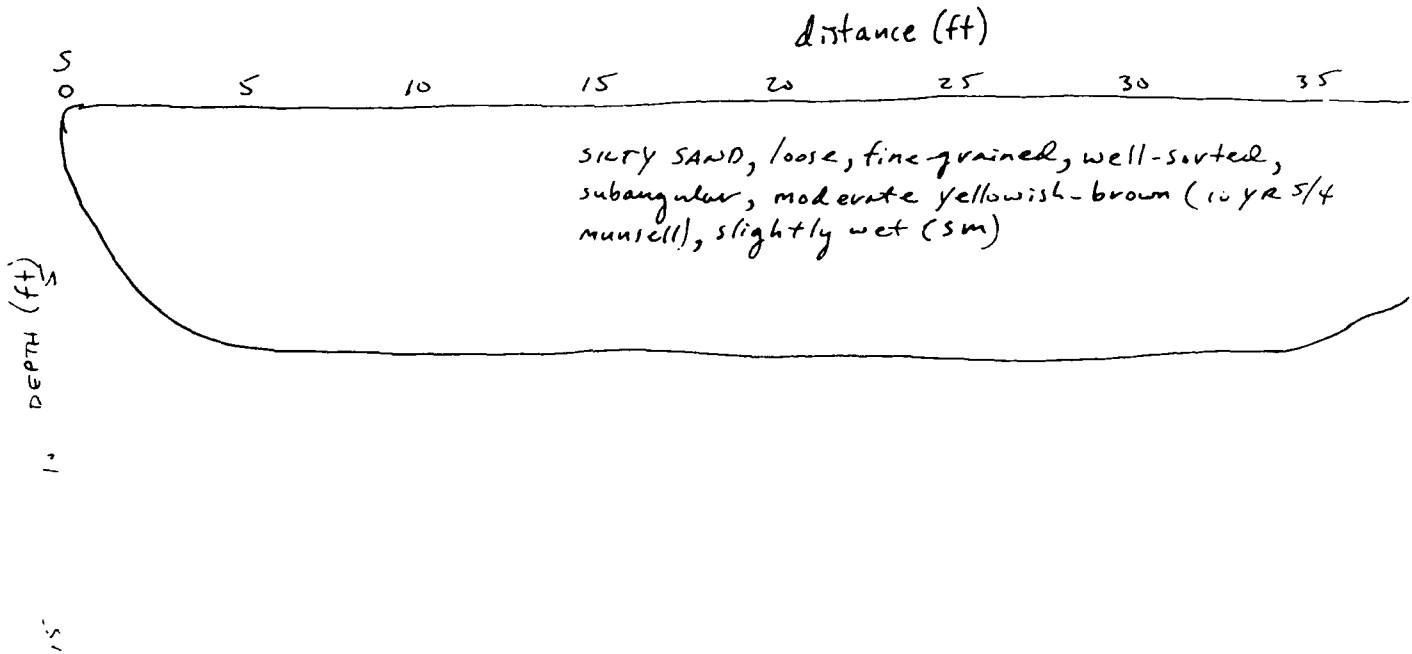 distance (ft)
S
0 5 10 15 20 25 30 35
SILTY SAND, loose, fine-grained, well-sorted,
subangular, moderate yellowish-brown (10 YR 5/4
munsell), slightly wet (sm)
DEPTH (ft)
5
10
15